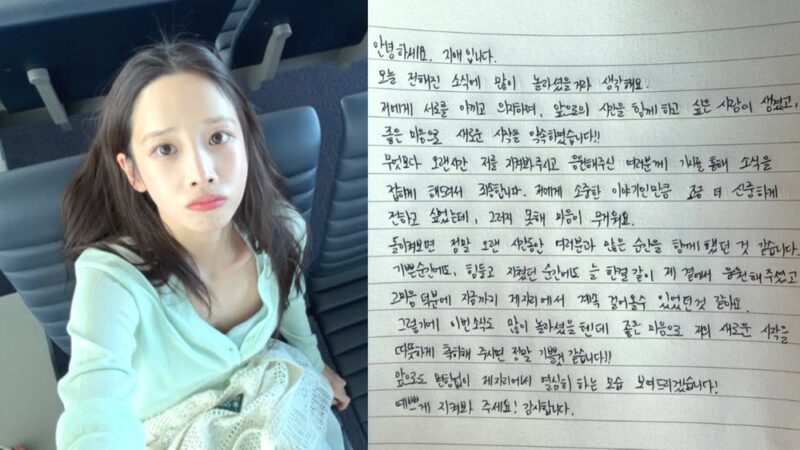 안녕하세요. 지애입니다.
오늘 전해진 소식에 많이 놀라셨을거라 생각해요.
저에게 서로를 아끼고 의지하며, 앞으로의 시간을 함께 하고 싶은 사람이 생겼고,
좋은 마음으로 새로운 시작을 약속하였습니다!!
무엇보다 오랜시간 저를 지켜봐주시고 응원해주신 여러분께 기사를 통해 소식을
접하게 해드려서 죄송합니다. 저에게 소중한 이야기인만큼 조금 더 신중하게
전하고 싶었는데, 그러지 못해 마음이 무거워요.
돌이켜보면 정말 오랜 시간동안 여러분과 많은 순간을 함께 했던 것 같습니다.
기쁜순간에도, 힘들고 지쳤던 순간에도 늘 한결 같이 제 곁에서 응원해 주셨고
그마음 덕분에 지금까지 제자리에서 계속 걸어올수 있었던것 같아요.
그렇기에 이번소식도 많이 놀라셨을 텐데 좋은 마음으로 저의 새로운 시작을
따뜻하게 축하해 주시면 정말 기쁠것 같습니다!!
앞으로도 변함없이 제자리에서 열심히 하는 모습 보여드리겠습니다!
예쁘게 지켜봐 주세요! 감사합니다.